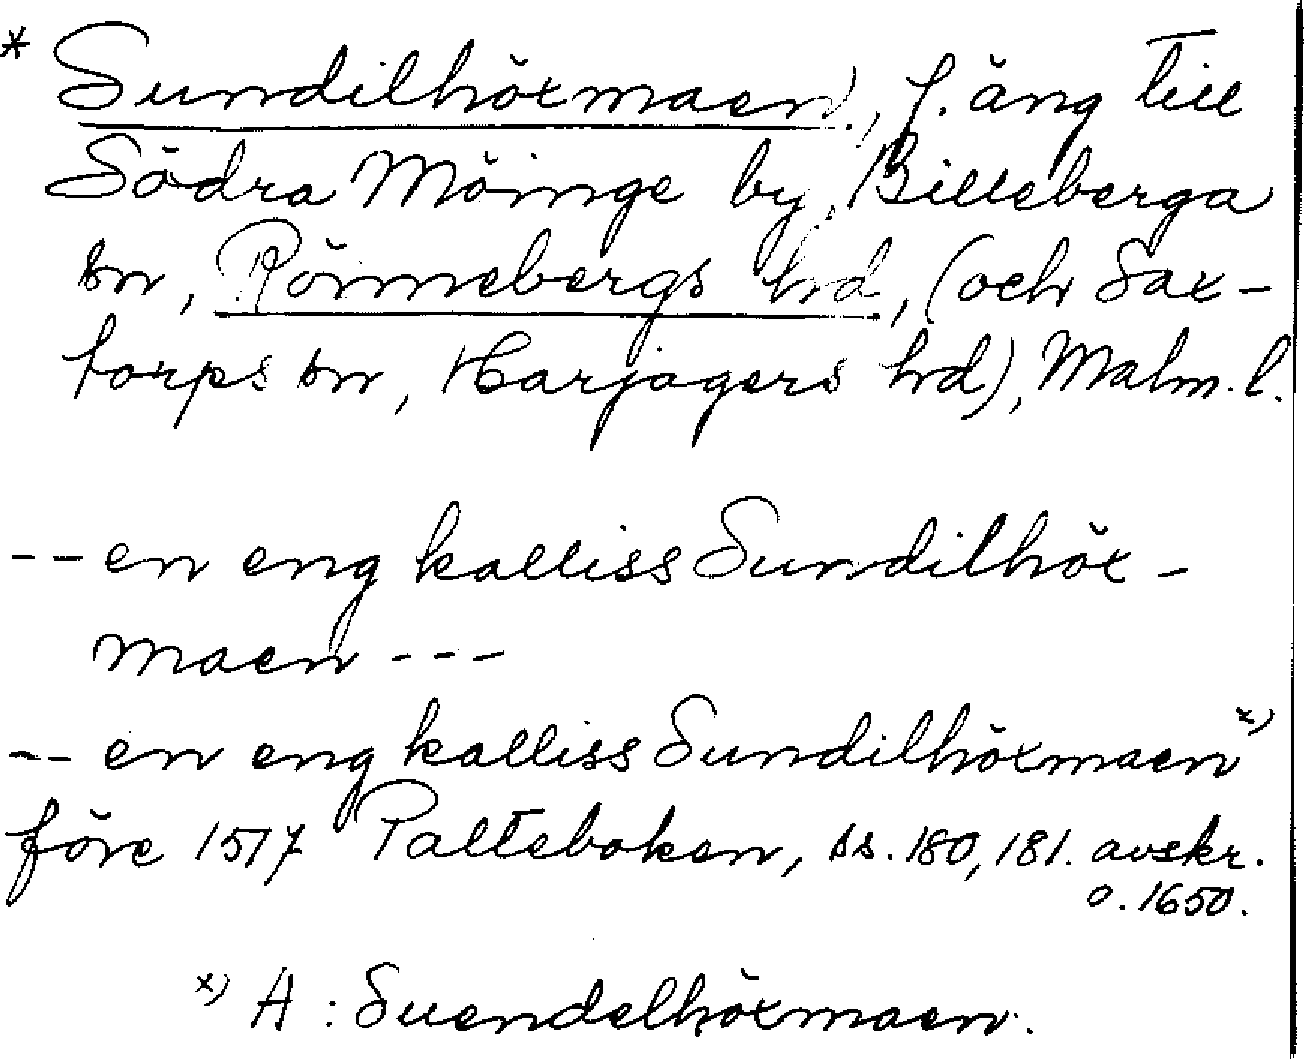 * Sundilhöxmaen, f. äng till
Södra Möinge by, Billeberga
sn, Rönnebergs hd, (och Sax-
torps sn, Harjagers hd), Malm. l.
-- en eng kalliss Sundilhöx-
maen ---
-- en eng kalliss Sundilhöxmaen x)
före 1517 Palteboken, ss. 180, 181. avskr.
o. 1650.
x) A: Suendelhöxmaen.